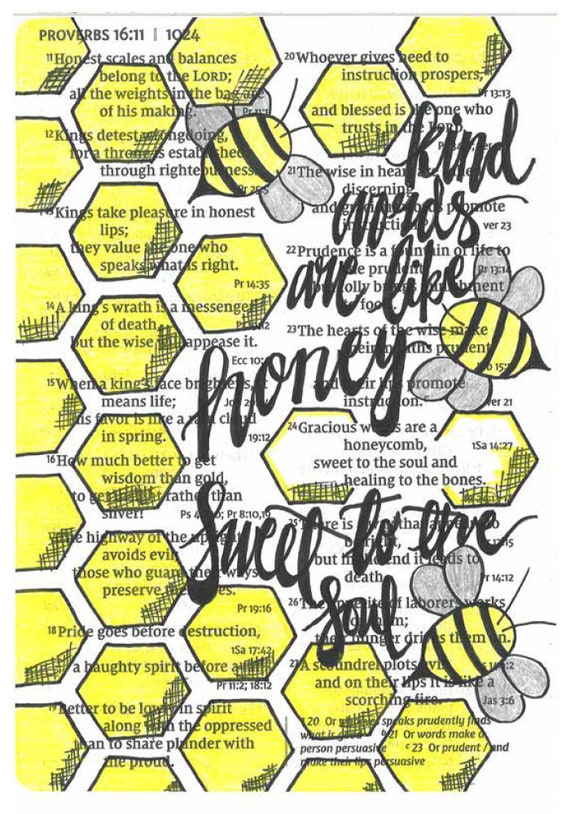 PROVERBS 16:11 | 1024
11 Honest scales and balances
belong to the LORD;
all the weights in the bag are
of his making.
12 Kings detest wrongdoing,
for a throne is established
through righteousness.
13 Kings take pleasure in honest
lips;
they value the one who
speaks what is right.
Pr 14:35
14 A king's wrath is a messenger
of death,
but the wise will appease it.
Ecc 10:
15 When a king's face brightens, it
means life;
his favor is like a rain cloud
in spring.
19:12
16 How much better to get
wisdom than gold,
to get insight rather than
silver!
Pr 8:10,19
The highway of the upright
avoids evil;
those who guard their ways
preserve their lives.
Pr 19:16
18 Pride goes before destruction,
1Sa 17:42
a haughty spirit before a fall.
Pr 11:2; 18:12
19 Better to be lowly in spirit
along with the oppressed
than to share plunder with
the proud.
20 Whoever gives heed to
instruction prospers,
Pr 13:13
and blessed is the one who
trusts in the LORD.
21 The wise in heart are called
discerning,
and gracious words promote
instruction.
ver 23
22 Prudence is a fountain of life to
the prudent,
Pr 13:14
but folly brings punishment
to fools.
23 The hearts of the wise make
their mouths prudent,
and their lips promote
instruction.
ver 21
24 Gracious words are a
honeycomb,
1Sa 14:27
sweet to the soul and
healing to the bones.
25 There is a way that appears to
be right,
but in the end it leads to
death.
Pr 14:12
26 The appetite of laborers works
for them;
their hunger drives them on.
27 A scoundrel plots evil,
and on their lips it is like a
scorching fire.
Jas 3:6
20 Or speaks prudently finds
what is good b 21 Or words make a
person persuasive c 23 Or prudent / and
make their lips persuasive
kind
words
are like
honey
Sweet to the
Soul